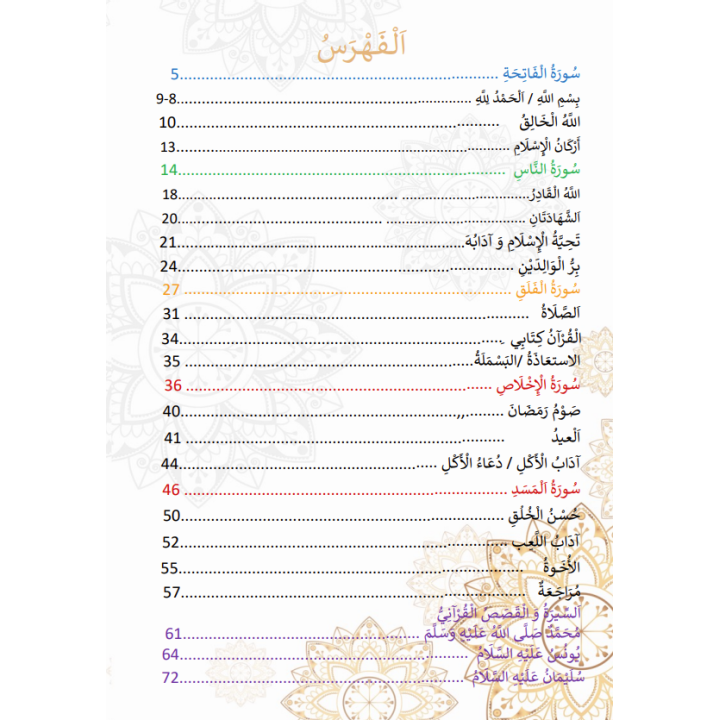 اَلْفَهْرَسُ
سُورَةُ الْفَاتِحَةِ ............................................................5
بِسْمِ اللَّهِ / اَلْحَمْدُ لِلَّهِ ............................................................8-9
اللَّهُ الْخَالِقُ ............................................................10
أَرْكَانُ الْإِسْلَامِ ............................................................13
سُورَةُ النَّاسِ ............................................................14
اللَّهُ الْقَادِرُ............................................................18
اَلشَّهَادَتَانِ ............................................................20
تَحِيَّةُ الْإِسْلَامِ وَ آدَابُهَ............................................................21
بِرُّ الْوَالِدَيْنِ ............................................................24
سُورَةُ الْفَلَقِ ............................................................ 27
اَلصَّلَاةُ ............................................................ 31
الْقُرْآنُ كِتَابِي ............................................................34
الاستعَاذَةُ /البَسْمَلَةُ............................................................ 35
سُورَةُ الْإِخْلَاصِ ............................................................ 36
صَوْمُ رَمَضَانَ .........,,..................................................40
اَلْعيدُ ............................................................ 41
آدَابُ الْأَكْلِ / دُعَاءُ الْأَكْلِ ............................................................44
سُورَةُ اَلْمَسَدِ ............................................................ 46
حُسْنُ الْخُلْقِ ............................................................50
آدَابُ اللَّعِب ............................................................52
الأُخُوةُ ............................................................55
مُرَاجَعَةٌ ............................................................57
اَلسِّيرَةُ وَ الْقَصَصُ الْقُرْآنِيُّ
مُحَمَّدٌ صَلَّى اللَّهُ عَلَيْهِ وَسَلَّمَ ............................................................61
يُونُسُ عَلَيْهِ السَّلَامُ ............................................................64
سُلَيْمَانُ عَلَيْهِ السَّلَامُ ............................................................72